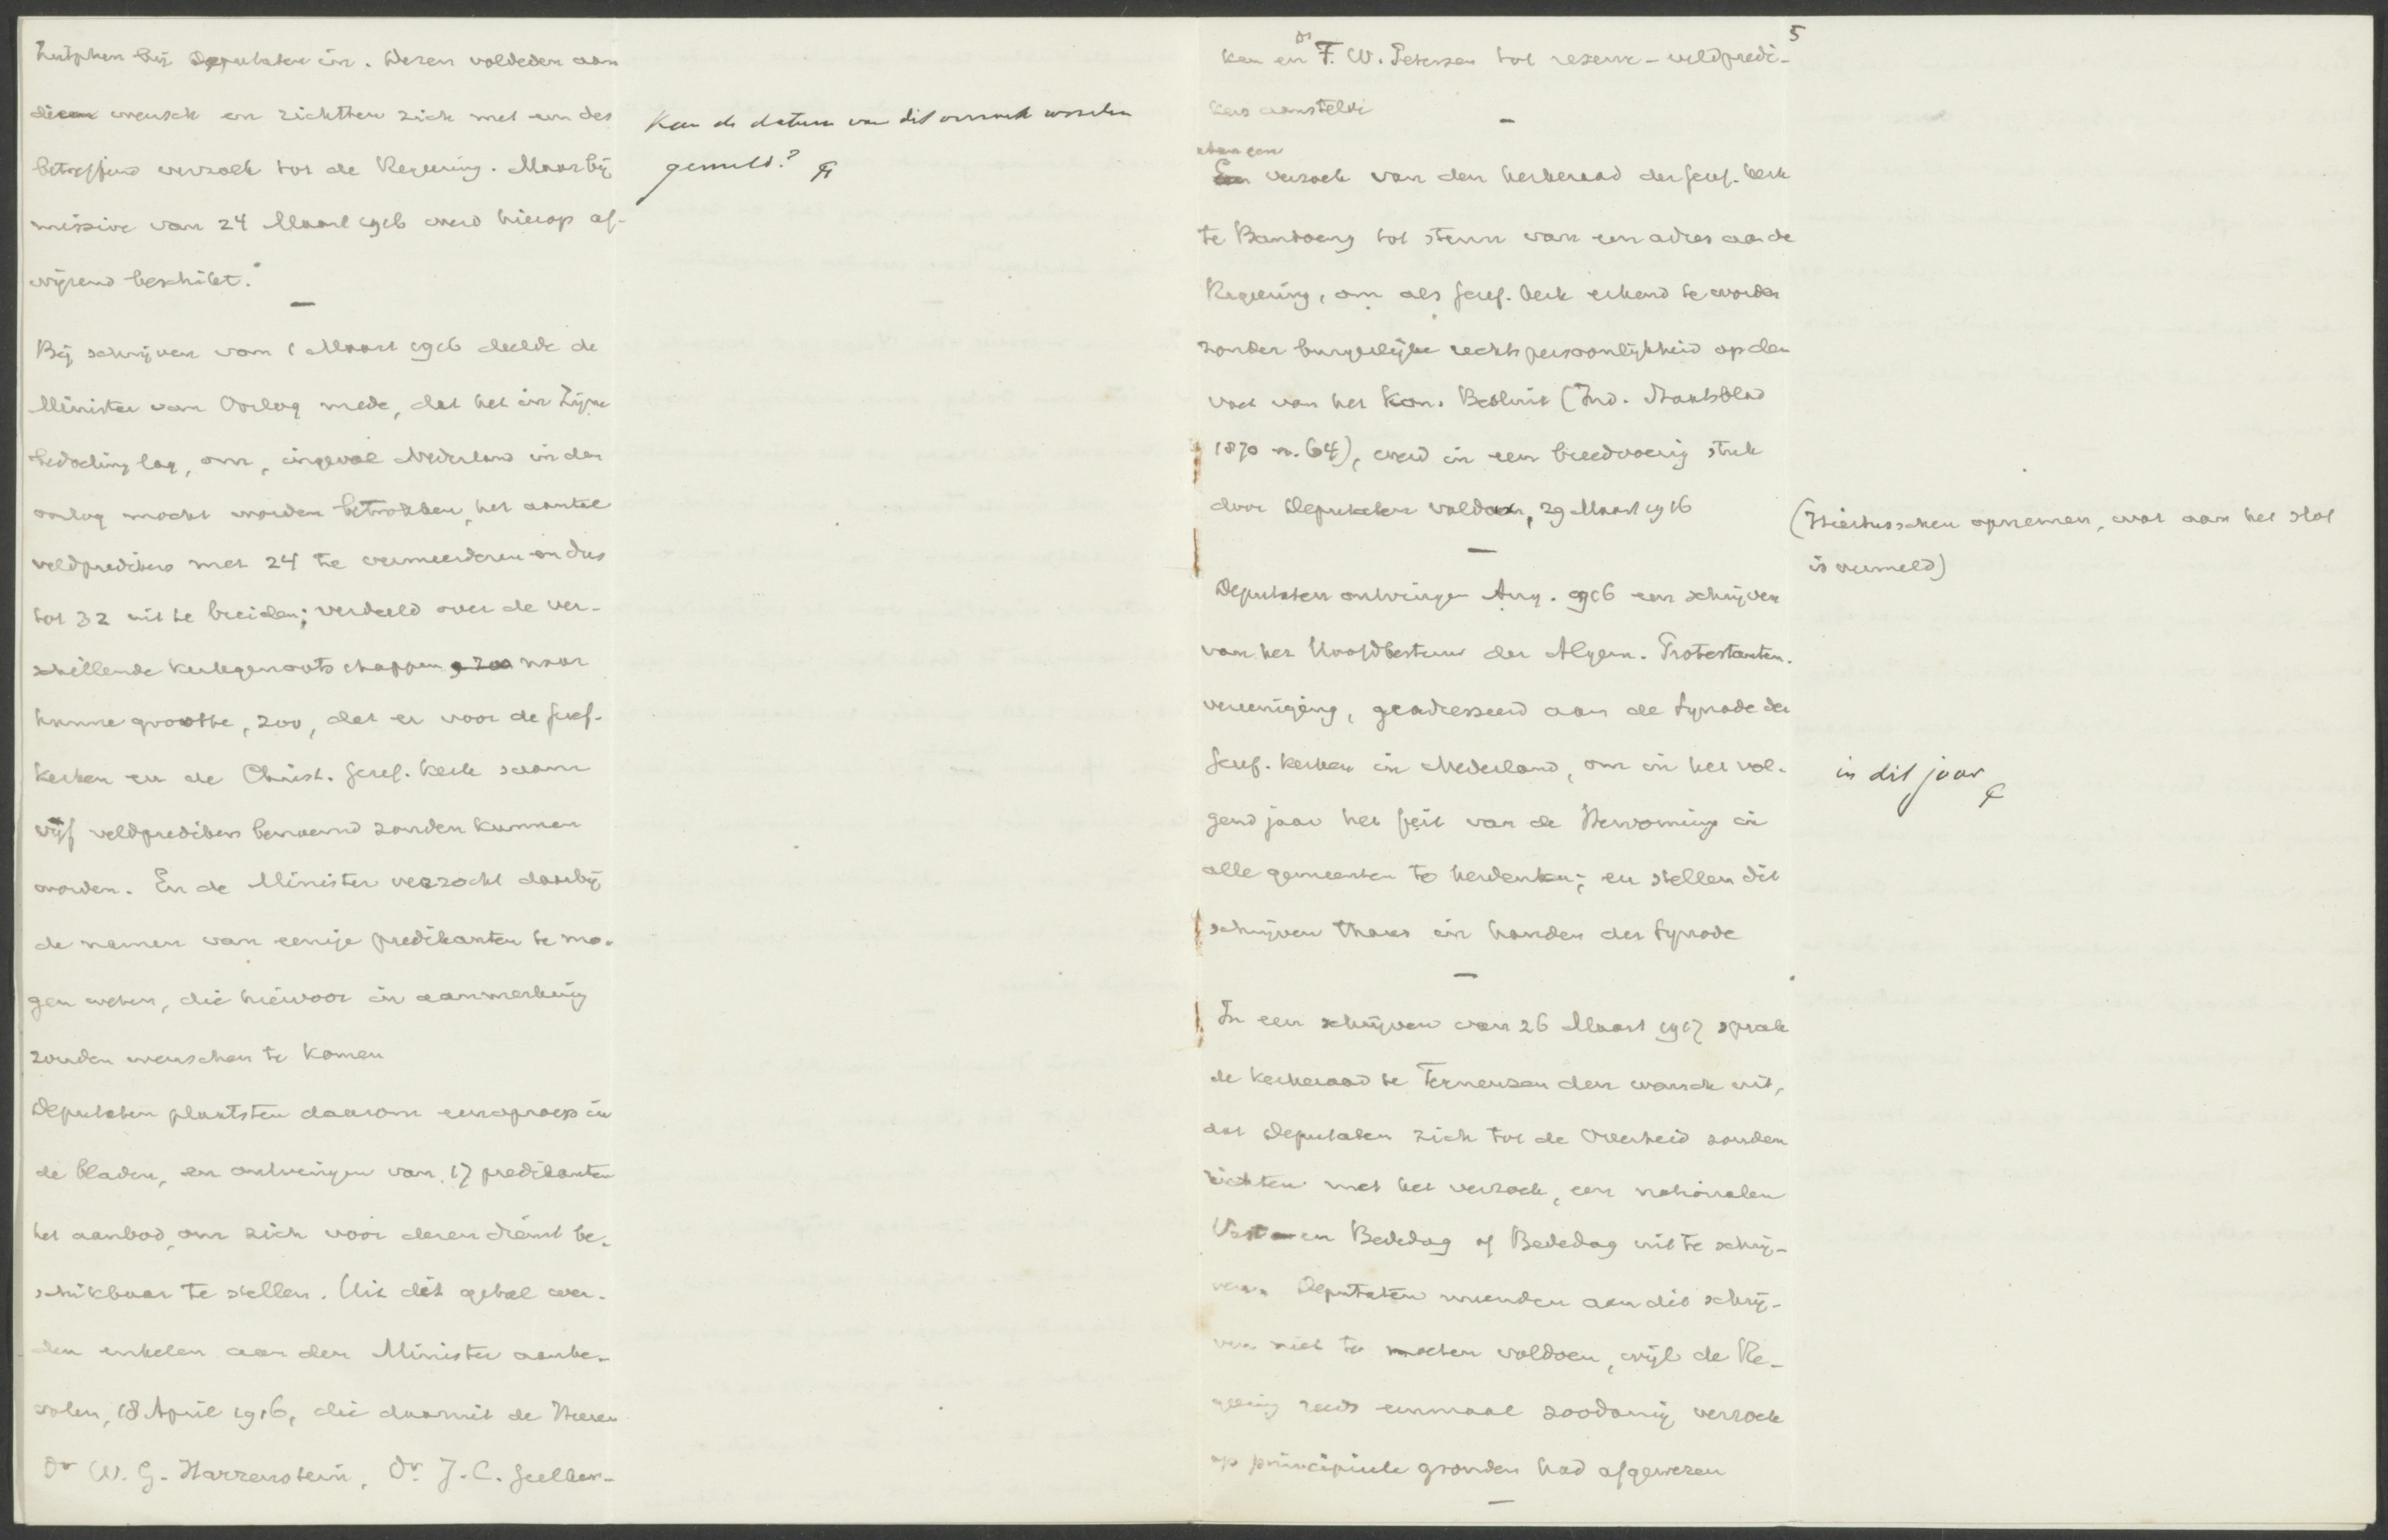 Zutphen bij Deputaten in. Dezen voldeden aan
dien wensch en richtten zich met een des
betreffend verzoek tot de Regeering. Maar bij
missive van 24 Maart 1916 werd hierop af-
wijzend beschikt.
—
Bij schrijven van 1 Maart 1916 deelde de
Minister van Oorlog mede, dat het in Zijne
bedoeling lag, om, ingeval Nederland in den
oorlog mocht worden betrokken, het aantal
veldpredikers met 24 te vermeerderen en dus
tot 32 uit te breiden; verdeeld over de ver-
schillende kerkgenootschappen, zoo naar
hunne grootte, zoo, dat er voor de Geref.
kerken en de Christ. Geref. kerk saam
vijf veldpredikers benoemd zouden kunnen
worden. En de Minister verzocht daarbij
de namen van eenige predikanten te mo-
gen weten, die hiervoor in aanmerking
zouden wenschen te komen
Deputaten plaatsten daarom een oproep in
de bladen, en ontvingen van 17 predikanten
het aanbod, om zich voor dezen dienst be-
schikbaar te stellen. Uit dit getal wer-
den enkelen aan den Minister aanbe-
volen, 18 April 1916, die daaruit de Heeren
Dr W. G. Harrenstein, Dr. J. C. Gilhuis-
Kan de datum van dit verzoek worden
gemeld?
5
ken en Ds F. W. Petersen tot reserve-veldpredi-
kers aanstelde
—
Aan een
Een verzoek van den kerkeraad der Geref. kerk
te Bandoeng tot steun van een adres aan de
Regeering, om als Geref. kerk erkend te worden
zonder burgerlijke rechtspersoonlijkheid op den
voet van het Kon. Besluit (Ind. Staatsblad
1870 n. 64), werd in een breedvoerig stuk
door Deputaten voldaan, 29 Maart 1916
—
Deputaten ontvingen Aug. 1916 een schrijven
van het Hoofdbestuur der Algem. Protestanten-
vereeniging, geadresseerd aan de Synode der
Geref. kerken in Nederland, om in het vol-
gend jaar het feit van de Hervorming in
alle gemeenten te herdenken; en stellen dit
schrijven thans in handen der Synode
—
In een schrijven van 26 Maart 1917 sprak
de kerkeraad te Terneuzen den wensch uit,
dat Deputaten zich tot de Overheid zouden
richten met het verzoek, een nationalen
Vast- en Bededag of Bededag uit te schrij-
ven. Deputaten meenden aan dit schrij-
ven niet te moeten voldoen, wijl de Re-
geering reeds eenmaal zoodanig verzoek
op principieele gronden had afgewezen
—
(Hiertusschen opnemen, wat aan het slot
is vermeld)
in dit jaar